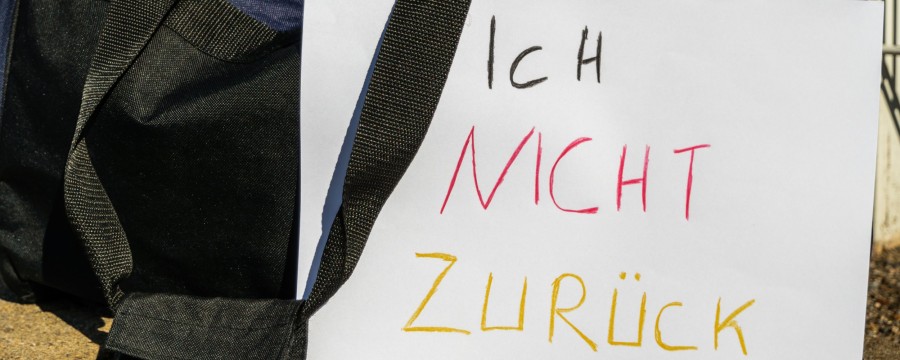 ICH
NICHT
ZURÜCK